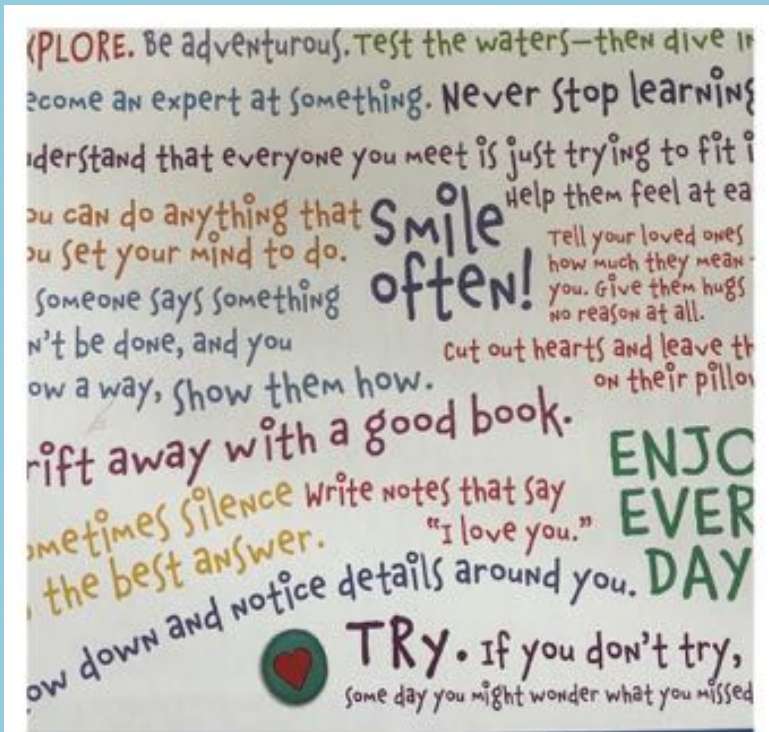 XPLORE. Be adventurous. Test the waters—then dive in
ecome an expert at something. Never stop learning
nderstand that everyone you meet is just trying to fit i
Help them feel at ea
ou can do anything that
ou set your mind to do.
Smile
often!
Tell your loved ones
how much they mean
you. Give them hugs
no reason at all.
someone says something
n't be done, and you
ow a way, show them how.
Cut out hearts and leave th
on their pillow
rift away with a good book.
ENJO
EVER
DAY
ometimes silence
the best answer.
Write notes that say
"I love you."
ow down and notice details around you.
TRY. If you don't try,
some day you might wonder what you missed